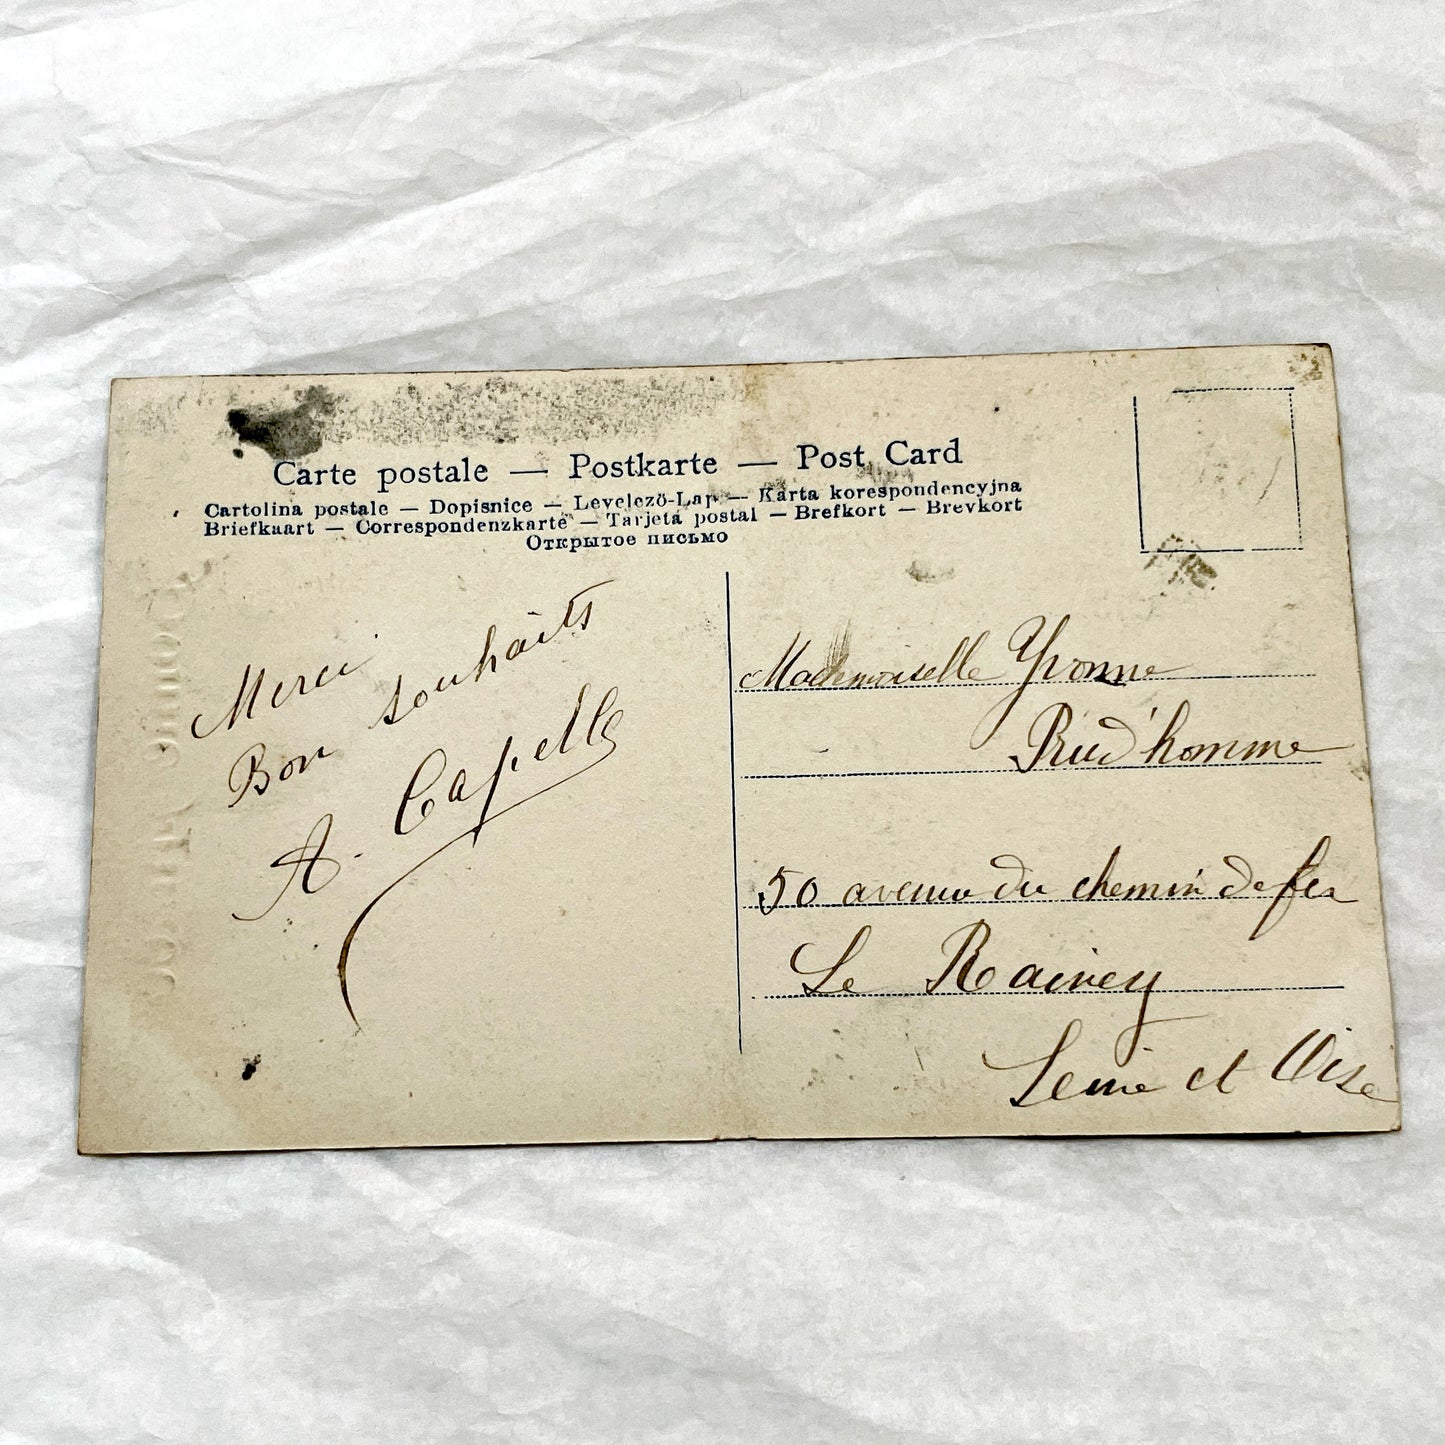 Carte postale — Postkarte — Post Card
Cartolina postale — Dopisnice — Levelező-Lap — Karta korespondencyjna
Briefkaart — Correspondenzkarte — Tarjeta postal — Brefkort — Brevkort
Открытое письмо
Merci
Bon souhaits
A. Capelle
Mademoiselle Yvonne
Prud'homme
50 avenue du chemin de fer
Le Rainey
Seine et Oise